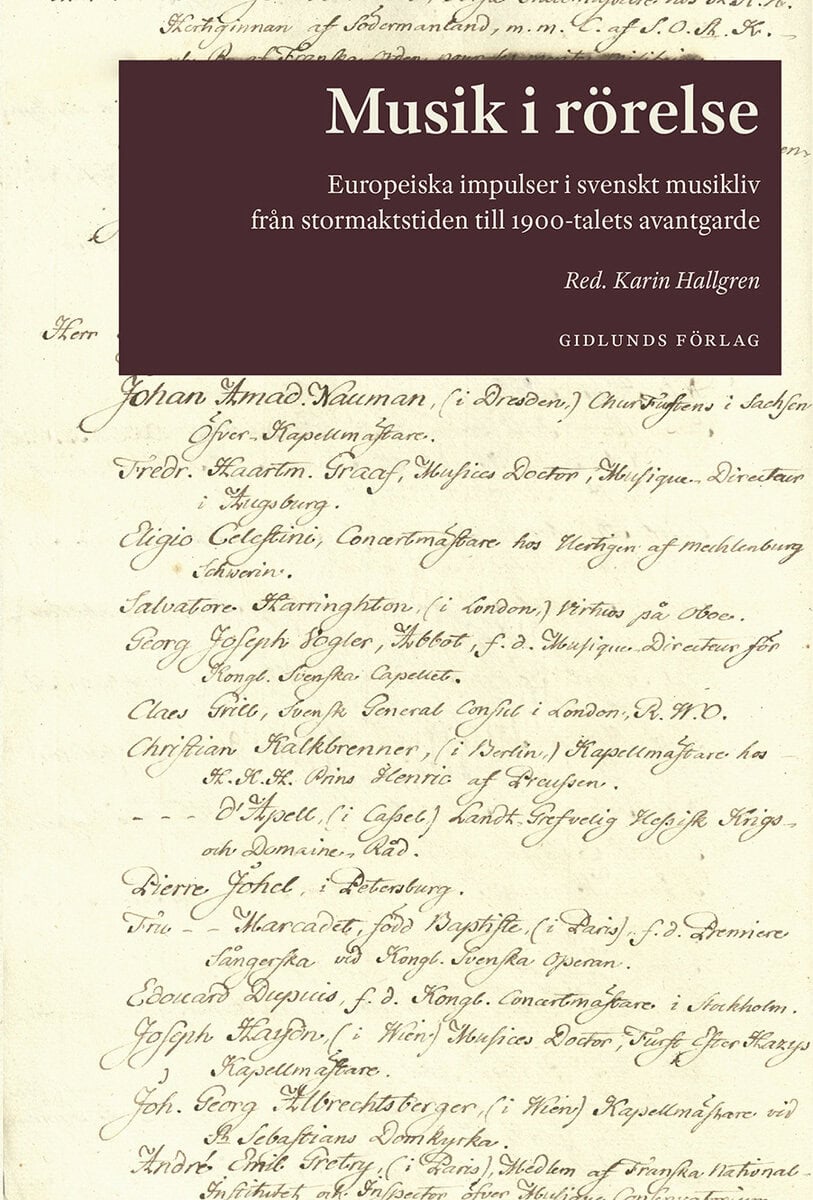 Hertiginnan af Södermanland, m.m. C. af S.O. St. K.
Musik i rörelse
Europeiska impulser i svenskt musikliv
från stormaktstiden till 1900-talets avantgarde
Red. Karin Hallgren
GIDLUNDS FÖRLAG
Herr
Johan Amad. Nauman, (i Dresden,) ChurFurstens i Sachsen
Öfver-Kapellmästare.
Fredr. Haartm. Graaf, Musices Doctor, Musique-Directeur
i Augsburg.
Eligio Celestini, Concertmästare hos Hertigen af Mechlenburg
Schwerin.
Salvatore Harringhton, (i London,) Virtuos på Oboe.
Georg Joseph Vogler, Abbot, f.d. Musique-Directeur för
Kongl. Svenska Capellet.
Claes Grill, Svensk General Consul i London, R.W.O.
Christian Kalkbrenner, (i Berlin,) Kapellmästare hos
H.K.H. Prins Henric af Preussen.
- - - D'Apell, (i Cassel) Landt-Grefvelig Hessisk Krigs-
och Domaine-Råd.
Pierre Johel, i Petersburg.
Fru - - Marcadet, född Baptiste, (i Paris), f.d. Premiere
Sångerska vid Kongl. Svenska Operan.
Edouard Dupuis, f.d. Kongl. Concertmästare i Stockholm.
Joseph Haydn, (i Wien) Musices Doctor, Furst Ester Hazys
Kapellmästare.
Joh. Georg Albrechtsberger, (i Wien) Kapellmästare vid
St Sebastians Domkyrka.
André Emil Gretry, (i Paris), Medlem af Franska National-
Institutet och Inspector öfver Musique Conservatorium